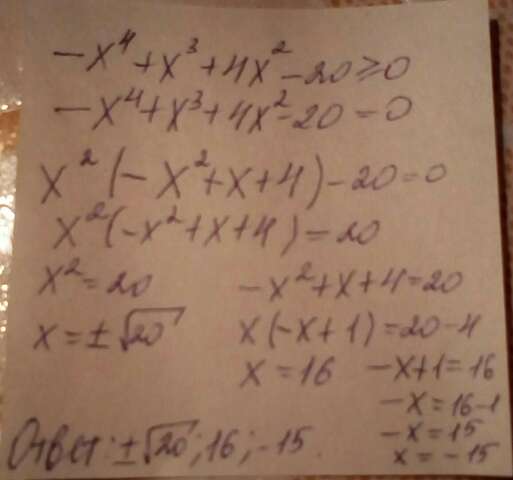 -x⁴+x³+4x²-20≥0
-x⁴+x³+4x²-20=0
x²(-x²+x+4)-20=0
x²(-x²+x+4)=20
x²=20
x=±√20
-x²+x+4=20
x(-x+1)=20-4
x=16
-x+1=16
-x=16-1
-x=15
x=-15
Ответ: ±√20; 16; -15.